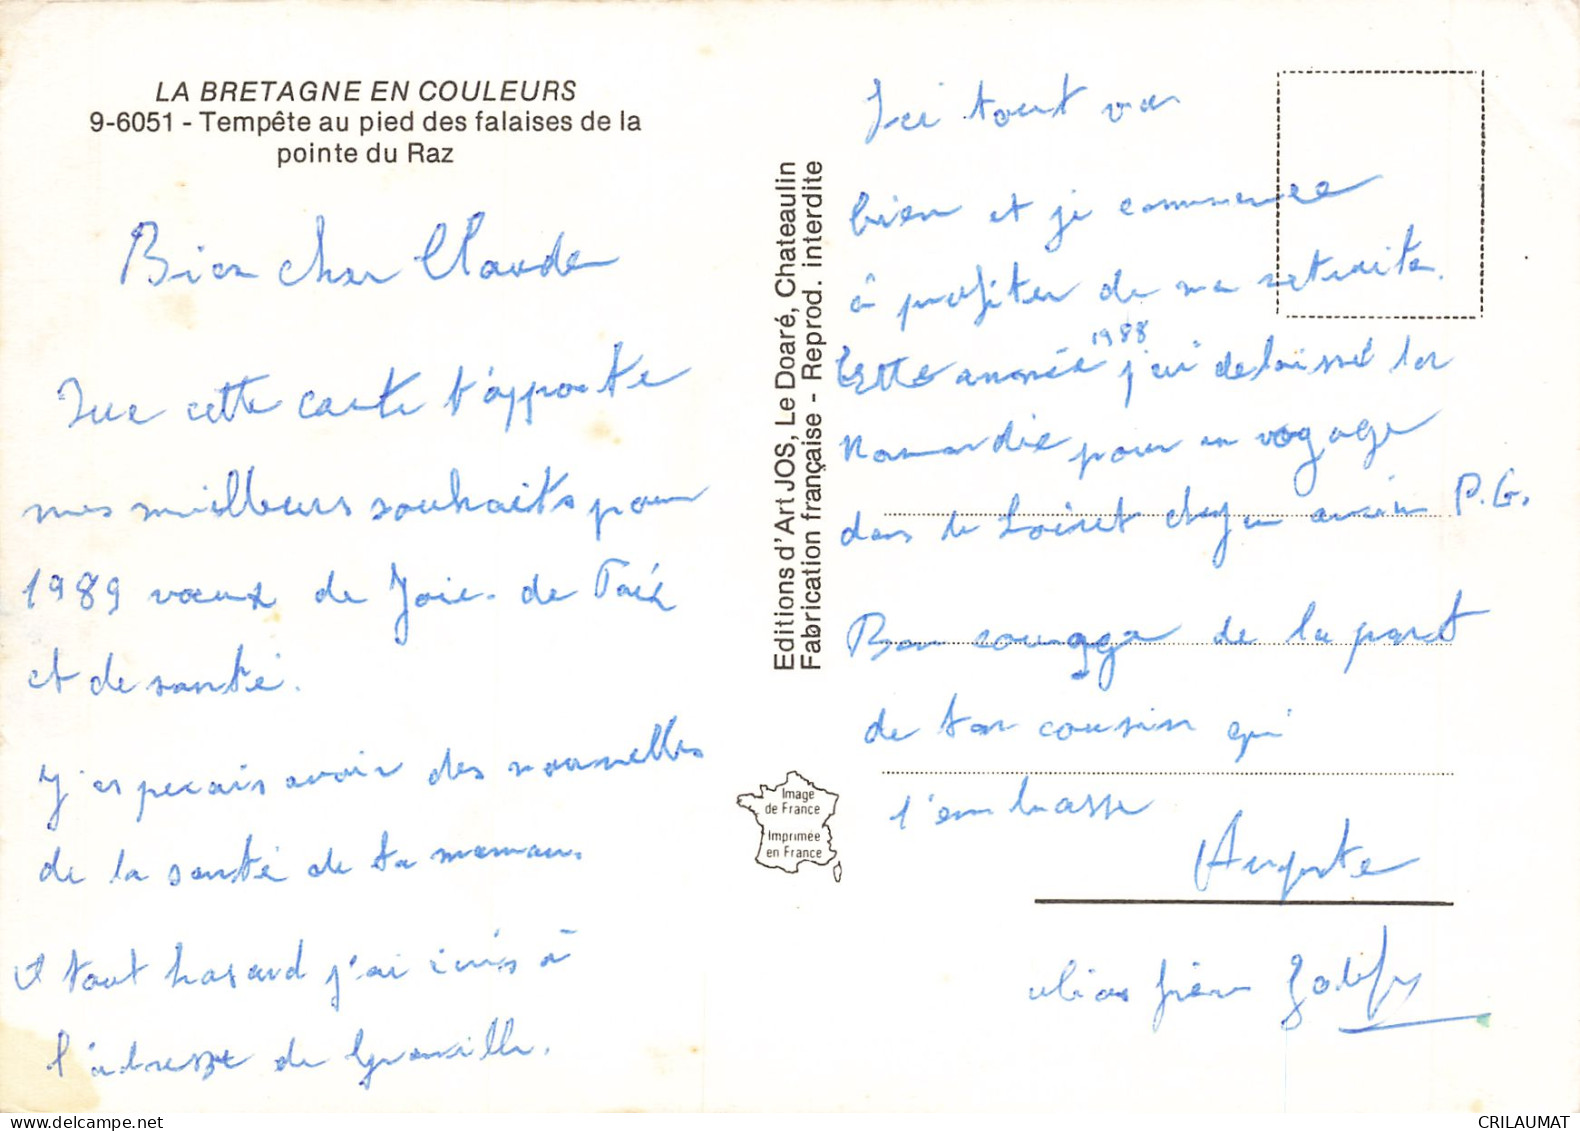 LA BRETAGNE EN COULEURS
9-6051 - Tempête au pied des falaises de la
pointe du Raz
Bien cher Claude
Que cette carte t'apporte
mes meilleurs souhaits pour
1989 vœux de Joie. de Paix
et de santé.
J'espérais avoir des nouvelles
de la santé de ta maman.
A tout hasard j'ai écris à
l'adresse de Granville.
Editions d'Art JOS, Le Doaré, Chateaulin
Fabrication française - Reprod. interdite
Image
de France
Imprimée
en France
Ici tout va
bien et je commence
à profiter de ma retraite.
Cette année 1988 j'ai delaissé la
Normandie pour un voyage
dans le Loiret chez un ancien P.G.
Bon courage de la part
de ton cousin qui
t'embrasse
Auguste
alias frère
CRILAUMAT